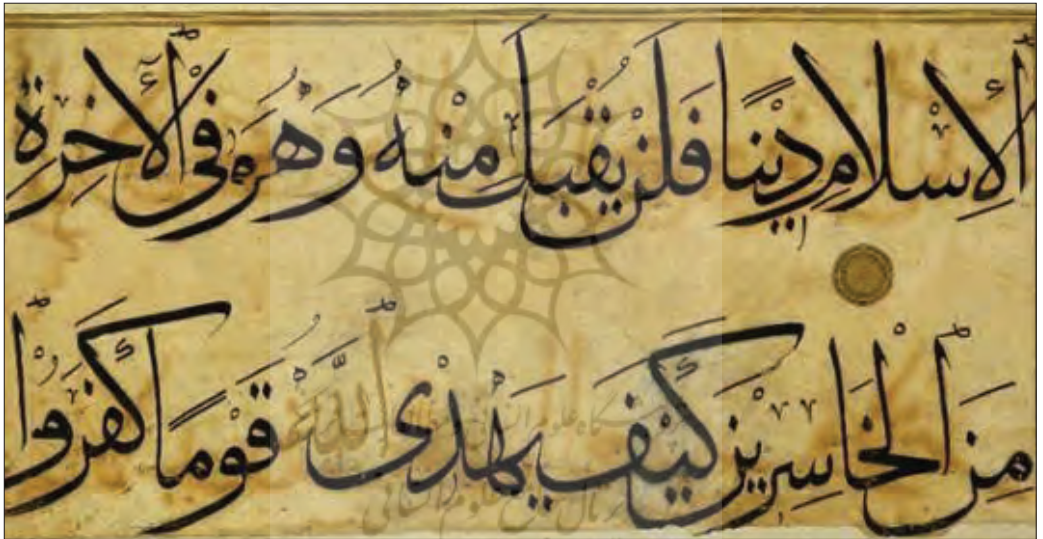 ٱلْإِسْلَامِ دِينًا فَلَنْ يُقْبَلَ مِنْهُ وَهُوَ فِى ٱلْآخِرَةِ
مِنَ ٱلْخَاسِرِينَ كَيْفَ يَهْدِى ٱللَّهُ قَوْمًا كَفَرُوا